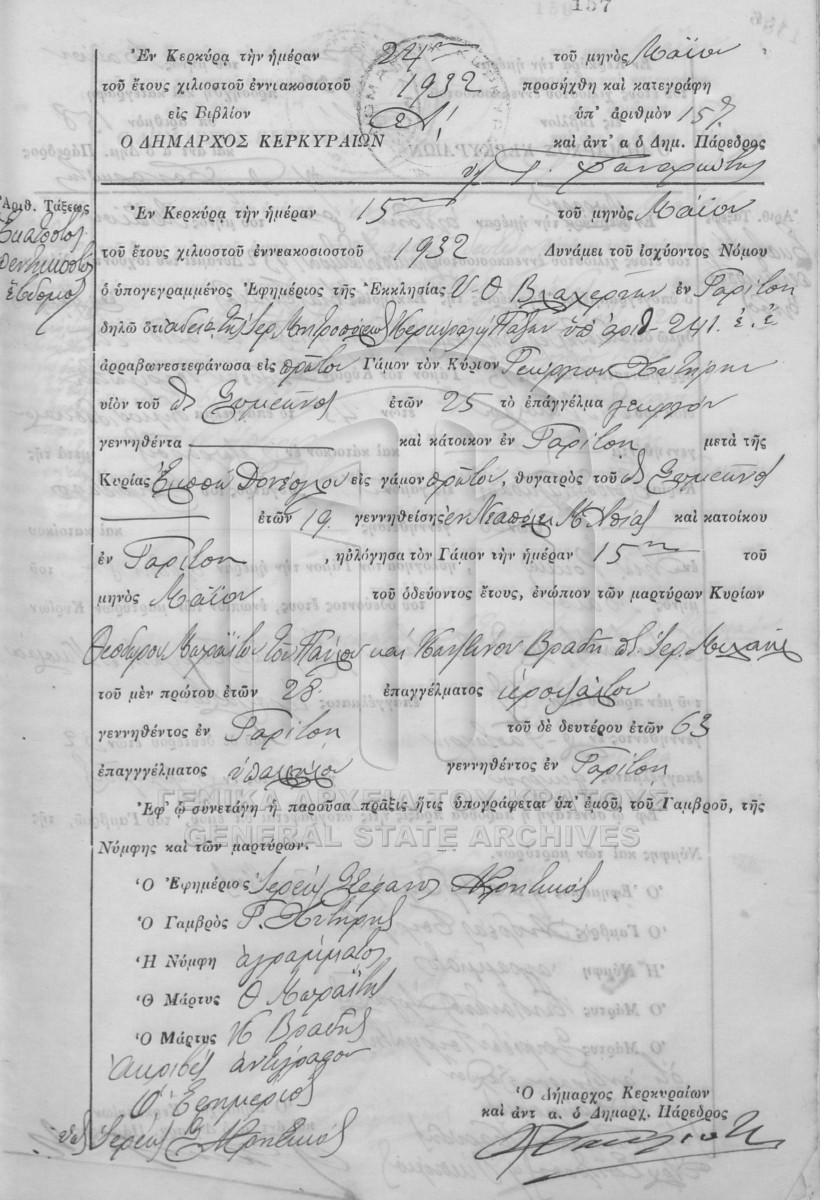 157
Ἐν Κερκύρᾳ τὴν ἡμέραν 24ην τοῦ μηνὸς Μαΐου
τοῦ ἔτους χιλιοστοῦ ἐννιακοσιοτοῦ 1932 προσήχθη καὶ κατεγράφη
εἰς Βιβλίον ὑπ' ἀριθμὸν 157
Ο ΔΗΜΑΡΧΟΣ ΚΕΡΚΥΡΑΙΩΝ καὶ ἀντ' α ὁ Δημ. Πάρεδρος
Ἀριθ. Τάξεως
Ἑκατοστὸς
πεντηκοστὸς
ἕβδομος
Ἐν Κερκύρᾳ τὴν ἡμέραν 15ην τοῦ μηνὸς Μαΐου
τοῦ ἔτους χιλιοστοῦ ἐννεακοσιοστοῦ 1932 Δυνάμει τοῦ ἰσχύοντος Νόμου
ὁ ὑπογεγραμμένος Ἐφημέριος τῆς Ἐκκλησίας Υ. Θ. Βλαχερνῶν ἐν Γαρίτσῃ
δηλῶ ὅτι ἀδείᾳ τῆς Ἱερ. Μητροπόλεως Κερκύρας Παξῶν ὑπ' ἀριθ. 241 ἐ. ἐ.
ἀρραβωνεστεφάνωσα εἰς πρῶτον Γάμον τὸν Κύριον Γεώργιον
υἱὸν τοῦ ἐτῶν 25 τὸ ἐπάγγέλμα γεωργὸν
γεννηθέντα καὶ κάτοικον ἐν Γαρίτσῃ μετὰ τῆς
Κυρίας εἰς γάμον πρῶτον, θυγατρὸς τοῦ
ἐτῶν 19 γεννηθείσης ἐν Νεαπόλει Μ. Ἀσίας καὶ κατοίκου
ἐν Γαρίτσῃ, ηὐλόγησα τὸν Γάμον τὴν ἡμέραν 15ην τοῦ
μηνὸς Μαΐου τοῦ ὁδεύοντος ἔτους, ἐνώπιον τῶν μαρτύρων Κυρίων
Θεοδώρου Μωραΐτου τοῦ καὶ Βραδῆ
τοῦ μὲν πρώτου ἐτῶν 28 ἐπαγγέλματος
γεννηθέντος ἐν Γαρίτσῃ τοῦ δὲ δευτέρου ἐτῶν 63
ἐπαγγγέλματος γεννηθέντος ἐν Γαρίτσῃ
Ἐφ' ᾧ συνετάγη ἡ παροῦσα πρᾶξις ἥτις ὑπογράφεται ὑπ' ἐμοῦ, τοῦ Γαμβροῦ, τῆς
Νύμφης καὶ τῶν μαρτύρων.
ΓΕΝΙΚΑ ΑΡΧΕΙΑ ΤΟΥ ΚΡΑΤΟΥΣ
GENERAL STATE ARCHIVES
Ὁ Ἐφημέριος Ἱερεὺς Στέφανος
Ὁ Γαμβρὸς Γ.
Ἡ Νύμφη ἀγράμματος
Ὁ Μάρτυς Θ. Μωραΐτης
Ὁ Μάρτυς Κ. Βραδῆς
Ἀκριβὲς ἀντίγραφον
Ὁ Ἐφημέριος
Ἱερεὺς
Ὁ Δήμαρχος Κερκυραίων
καὶ ἀντ α. ὁ Δημαρχ. Πάρεδρος